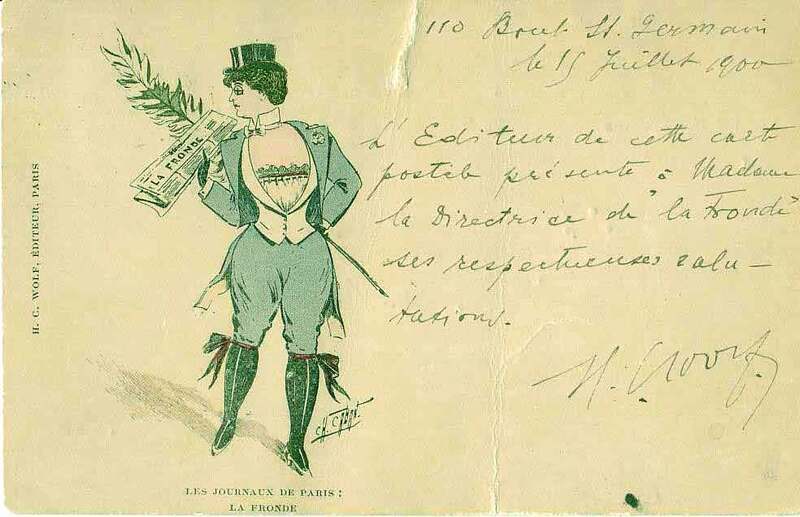 110 Boul St. Germain
le 15 Juillet 1900
L'Editeur de cette carte
postale présente à Madame
la Directrice de "la Fronde"
ses respectueuses salu-
tations.
LA FRONDE
H. C. WOLF, ÉDITEUR, PARIS
LES JOURNAUX DE PARIS :
LA FRONDE